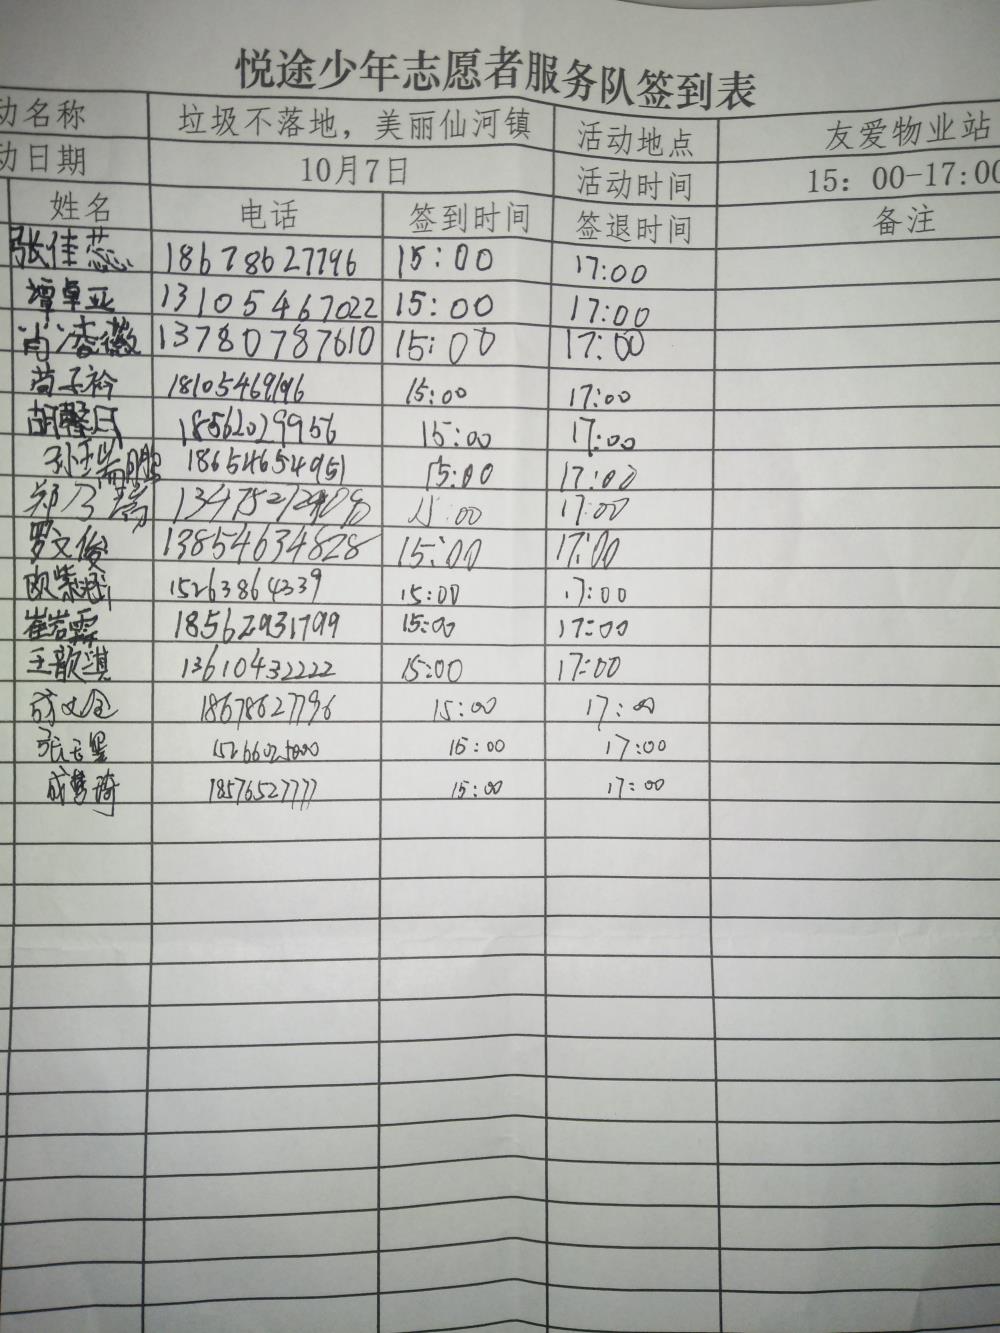 悦途少年志愿者服务队签到表
动名称 垃圾不落地，美丽仙河镇 活动地点 友爱物业站
动日期 10月7日 活动时间 15：00-17:00
姓名 电话 签到时间 签退时间 备注
张佳蕊 18678627796 15:00 17:00
谭卓亚 13105467022 15:00 17:00
尚凌薇 13780787610 15:00 17:00
苟子衿 15:00 17:00
胡馨月 18562029956 15:00 17:00
18654654951 15:00 17:00
郑乃瑞 15:00 17:00
罗文俊 13854634828 15:00 17:00
欧紫 15263864339 15:00 17:00
崔若霖 18562931799 15:00 17:00
王歆淇 13610432222 15:00 17:00
成文 18678627796 15:00 17:00
张玉墨 15:00 17:00
成梦琦 18576527777 15:00 17:00